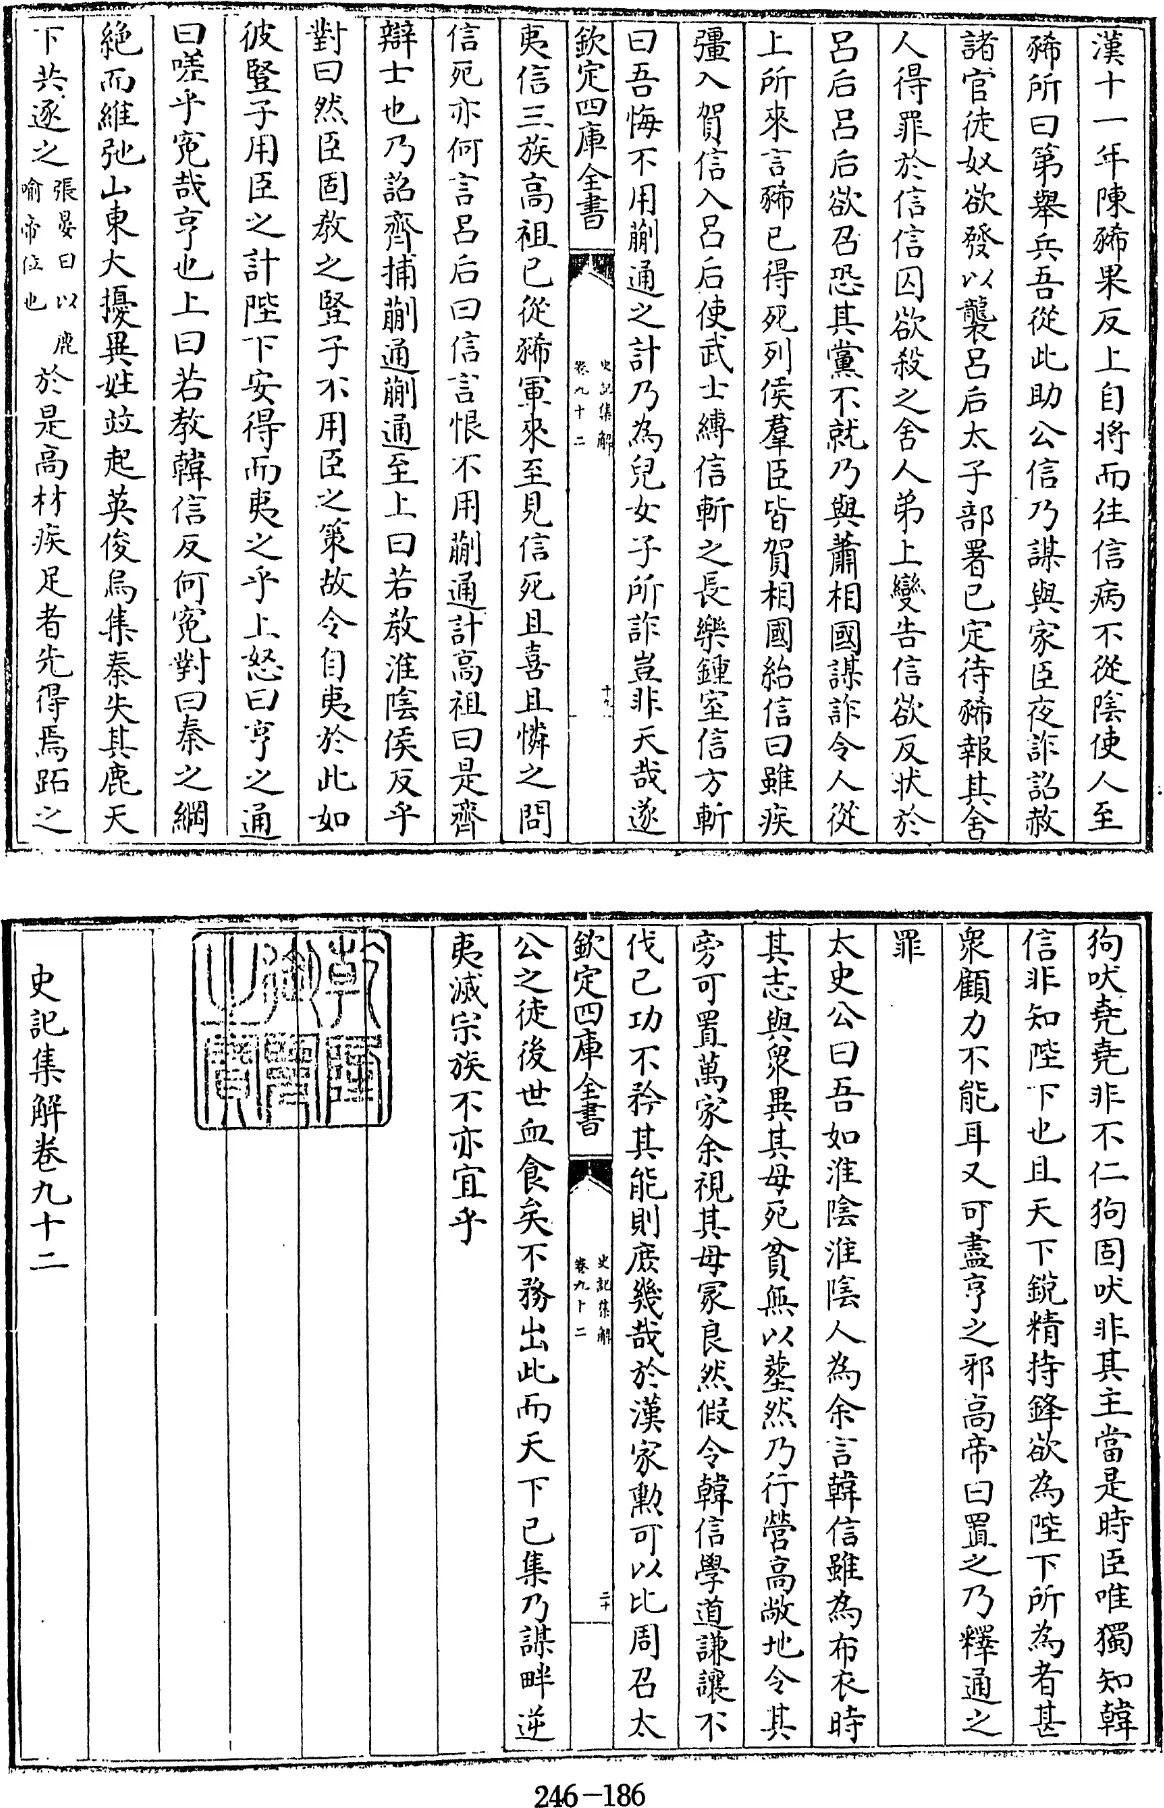 漢十一年陳豨果反上自將而往信病不從陰使人至
豨所曰第舉兵吾從此助公信乃謀與家臣夜詐詔赦
諸官徒奴欲發以襲呂后太子部署已定待豨報其舍
人得罪於信信囚欲殺之舍人弟上變告信欲反狀於
呂后呂后欲召恐其黨不就乃與蕭相國謀詐令人從
上所來言豨已得死列侯羣臣皆賀相國紿信曰雖疾
彊入賀信入呂后使武士縛信斬之長樂鍾室信方斬
曰吾悔不用蒯通之計乃為兒女子所詐豈非天哉遂
欽定四庫全書
史記集解
卷九十二
十九
夷信三族高祖已從豨軍來至見信死且喜且憐之問
信死亦何言呂后曰信言恨不用蒯通計高祖曰是齊
辯士也乃詔齊捕蒯通蒯通至上曰若教淮陰侯反乎
對曰然臣固教之豎子不用臣之策故令自夷於此如
彼豎子用臣之計陛下安得而夷之乎上怒曰亨之通
曰嗟乎冤哉亨也上曰若教韓信反何冤對曰秦之綱
絶而維弛山東大擾異姓竝起英俊烏集秦失其鹿天
下共逐之
張晏曰以鹿
喻帝位也
於是高材疾足者先得焉跖之
狗吠堯堯非不仁狗固吠非其主當是時臣唯獨知韓
信非知陛下也且天下銳精持鋒欲為陛下所為者甚
衆顧力不能耳又可盡亨之邪高帝曰置之乃釋通之
罪
太史公曰吾如淮陰淮陰人為余言韓信雖為布衣時
其志與衆異其母死貧無以葬然乃行營高敞地令其
旁可置萬家余視其母冢良然假令韓信學道謙讓不
伐已功不矜其能則庶幾哉於漢家勲可以比周召太
欽定四庫全書
史記集解
卷九十二
二十
公之徒後世血食矣不務出此而天下已集乃謀畔逆
夷滅宗族不亦宜乎
乾隆御覽之寶
史記集解卷九十二
246-186